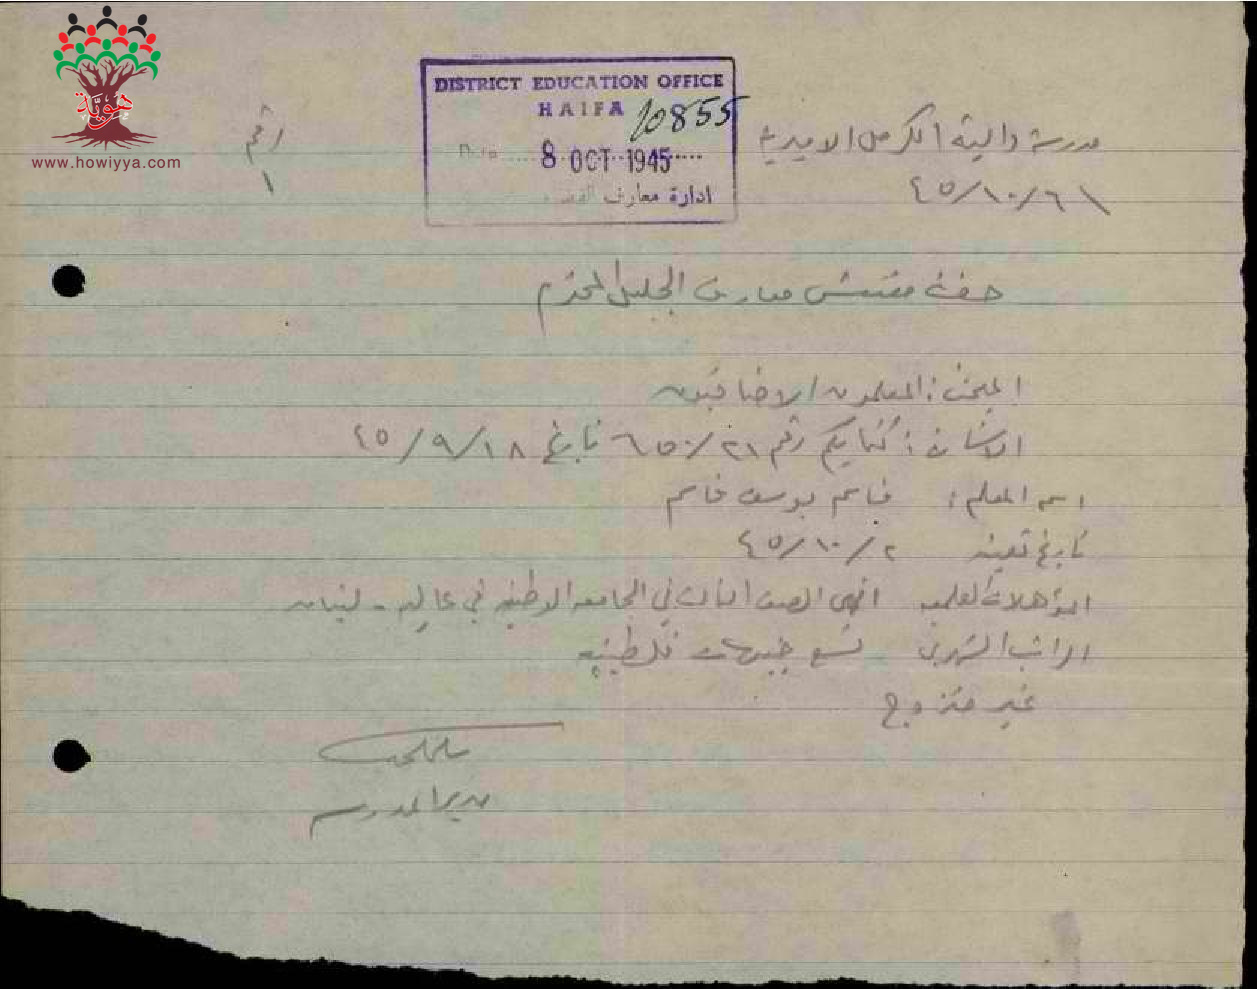 هويّة
www.howiyya.com
DISTRICT EDUCATION OFFICE
HAIFA
10855
Date 8 OCT 1945
ادارة معارف
رقم
١
مدرسة دالية الكرمل الاميرية
٤٥/١٠/٦
حضرة مفتش معارف الجليل المحترم
المبحث: المعلمون الاضافيون
الاشارة: كتابكم رقم ٦٥٠/٢١ تاريخ ٤٥/٩/١٨
اسم المعلم: قاسم يوسف قاسم
تاريخ تعينه ٤٥/١٠/٢
المؤهلات العلمية انهى الصف الثالث في الجامعه الوطنيه في عاليه - لبنان
الراتب الشهري تسع جنيهات فلسطينيه
غير متزوج
مدير المدرسه